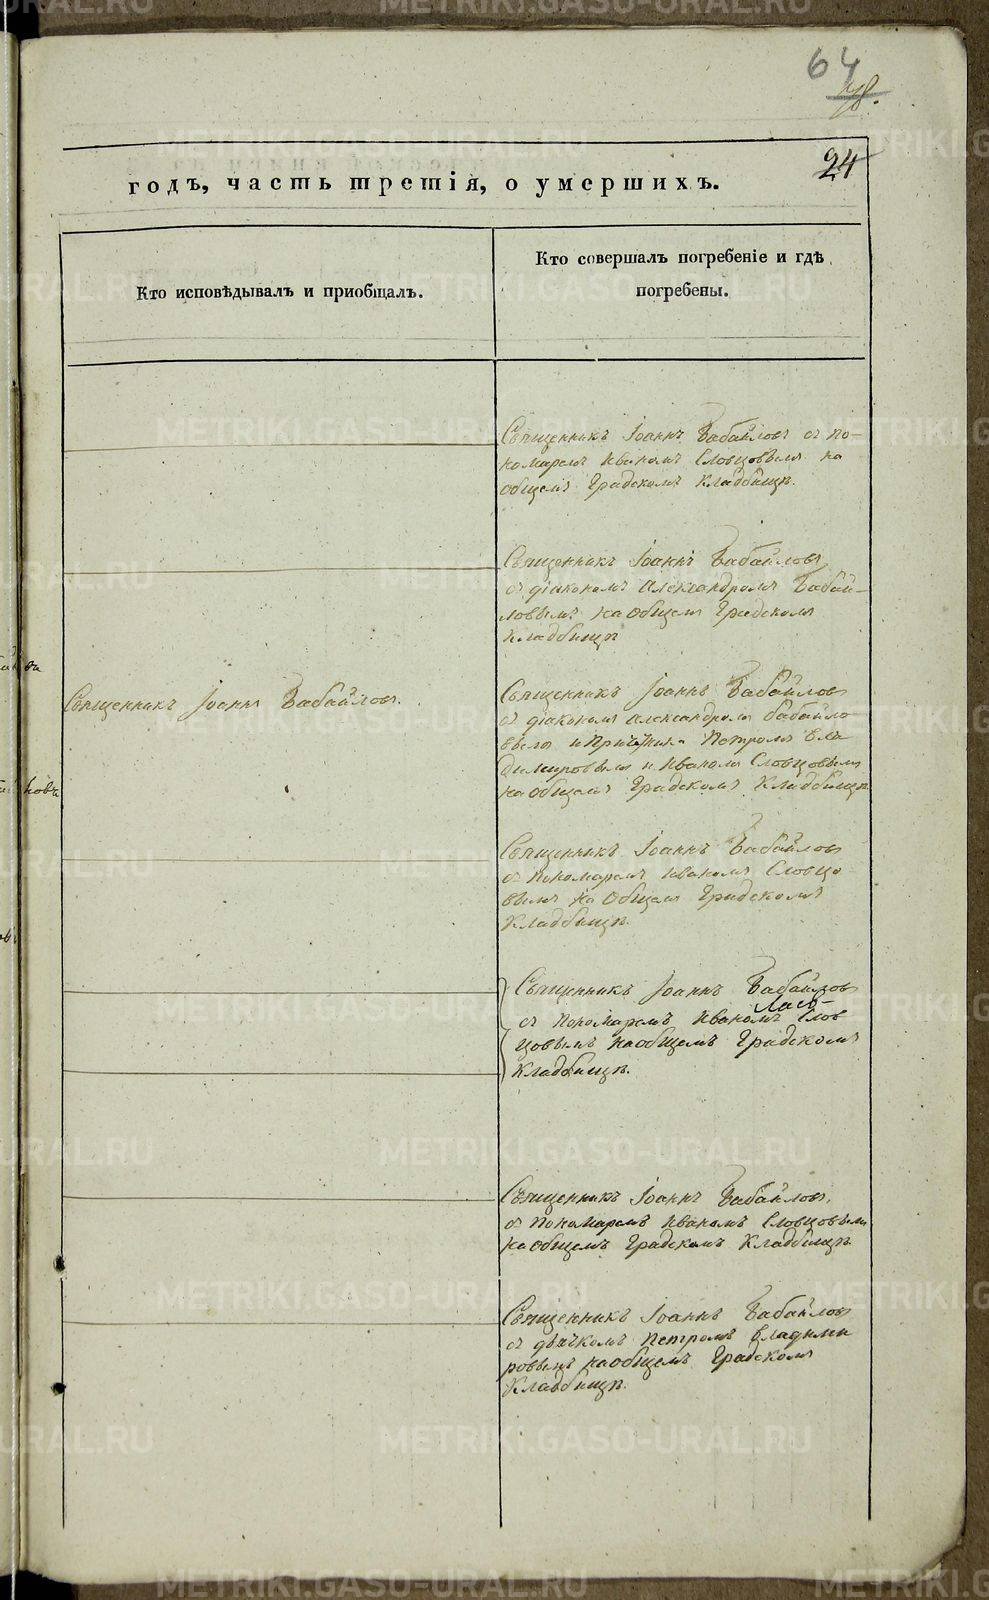 64
24
годъ, часть третія, о умершихъ.
Кто исповѣдывалъ и пріобщалъ.
Кто совершалъ погребеніе и гдѣ
погребены.
Священникъ Іоаннъ Бабайловъ съ по-
номаремъ Иваномъ Словцовымъ на
общемъ Градскомъ Кладбищѣ.
Священникъ Іоаннъ Бабайловъ
съ діакономъ Александромъ Бабай-
ловымъ на общемъ Градскомъ
Кладбищѣ
Священникъ Іоаннъ Бабайловъ.
Священникъ Іоаннъ Бабайловъ
съ діакономъ Александромъ Бабайло
вымъ и Петромъ Вла
димировымъ и Иваномъ Словцовымъ
на общемъ Градскомъ Кладбищѣ
Священникъ Іоаннъ Бабайловъ
съ пономаремъ Иваномъ Словцо
вымъ на общемъ Градскомъ
Кладбищѣ.
Священникъ Іоаннъ Бабайловъ
съ пономаремъ Иваномъ Слов
цовымъ на общемъ Градскомъ
Кладбищѣ.
Священникъ Іоаннъ Бабайловъ,
съ пономаремъ Иваномъ Словцовымъ
на общемъ Градскомъ Кладбищѣ.
Священникъ Іоаннъ Бабайловъ
съ дьячкомъ Петромъ Владими
ровымъ на общемъ Градскомъ
Кладбищѣ.
METRIKI.GASO-URAL.RU